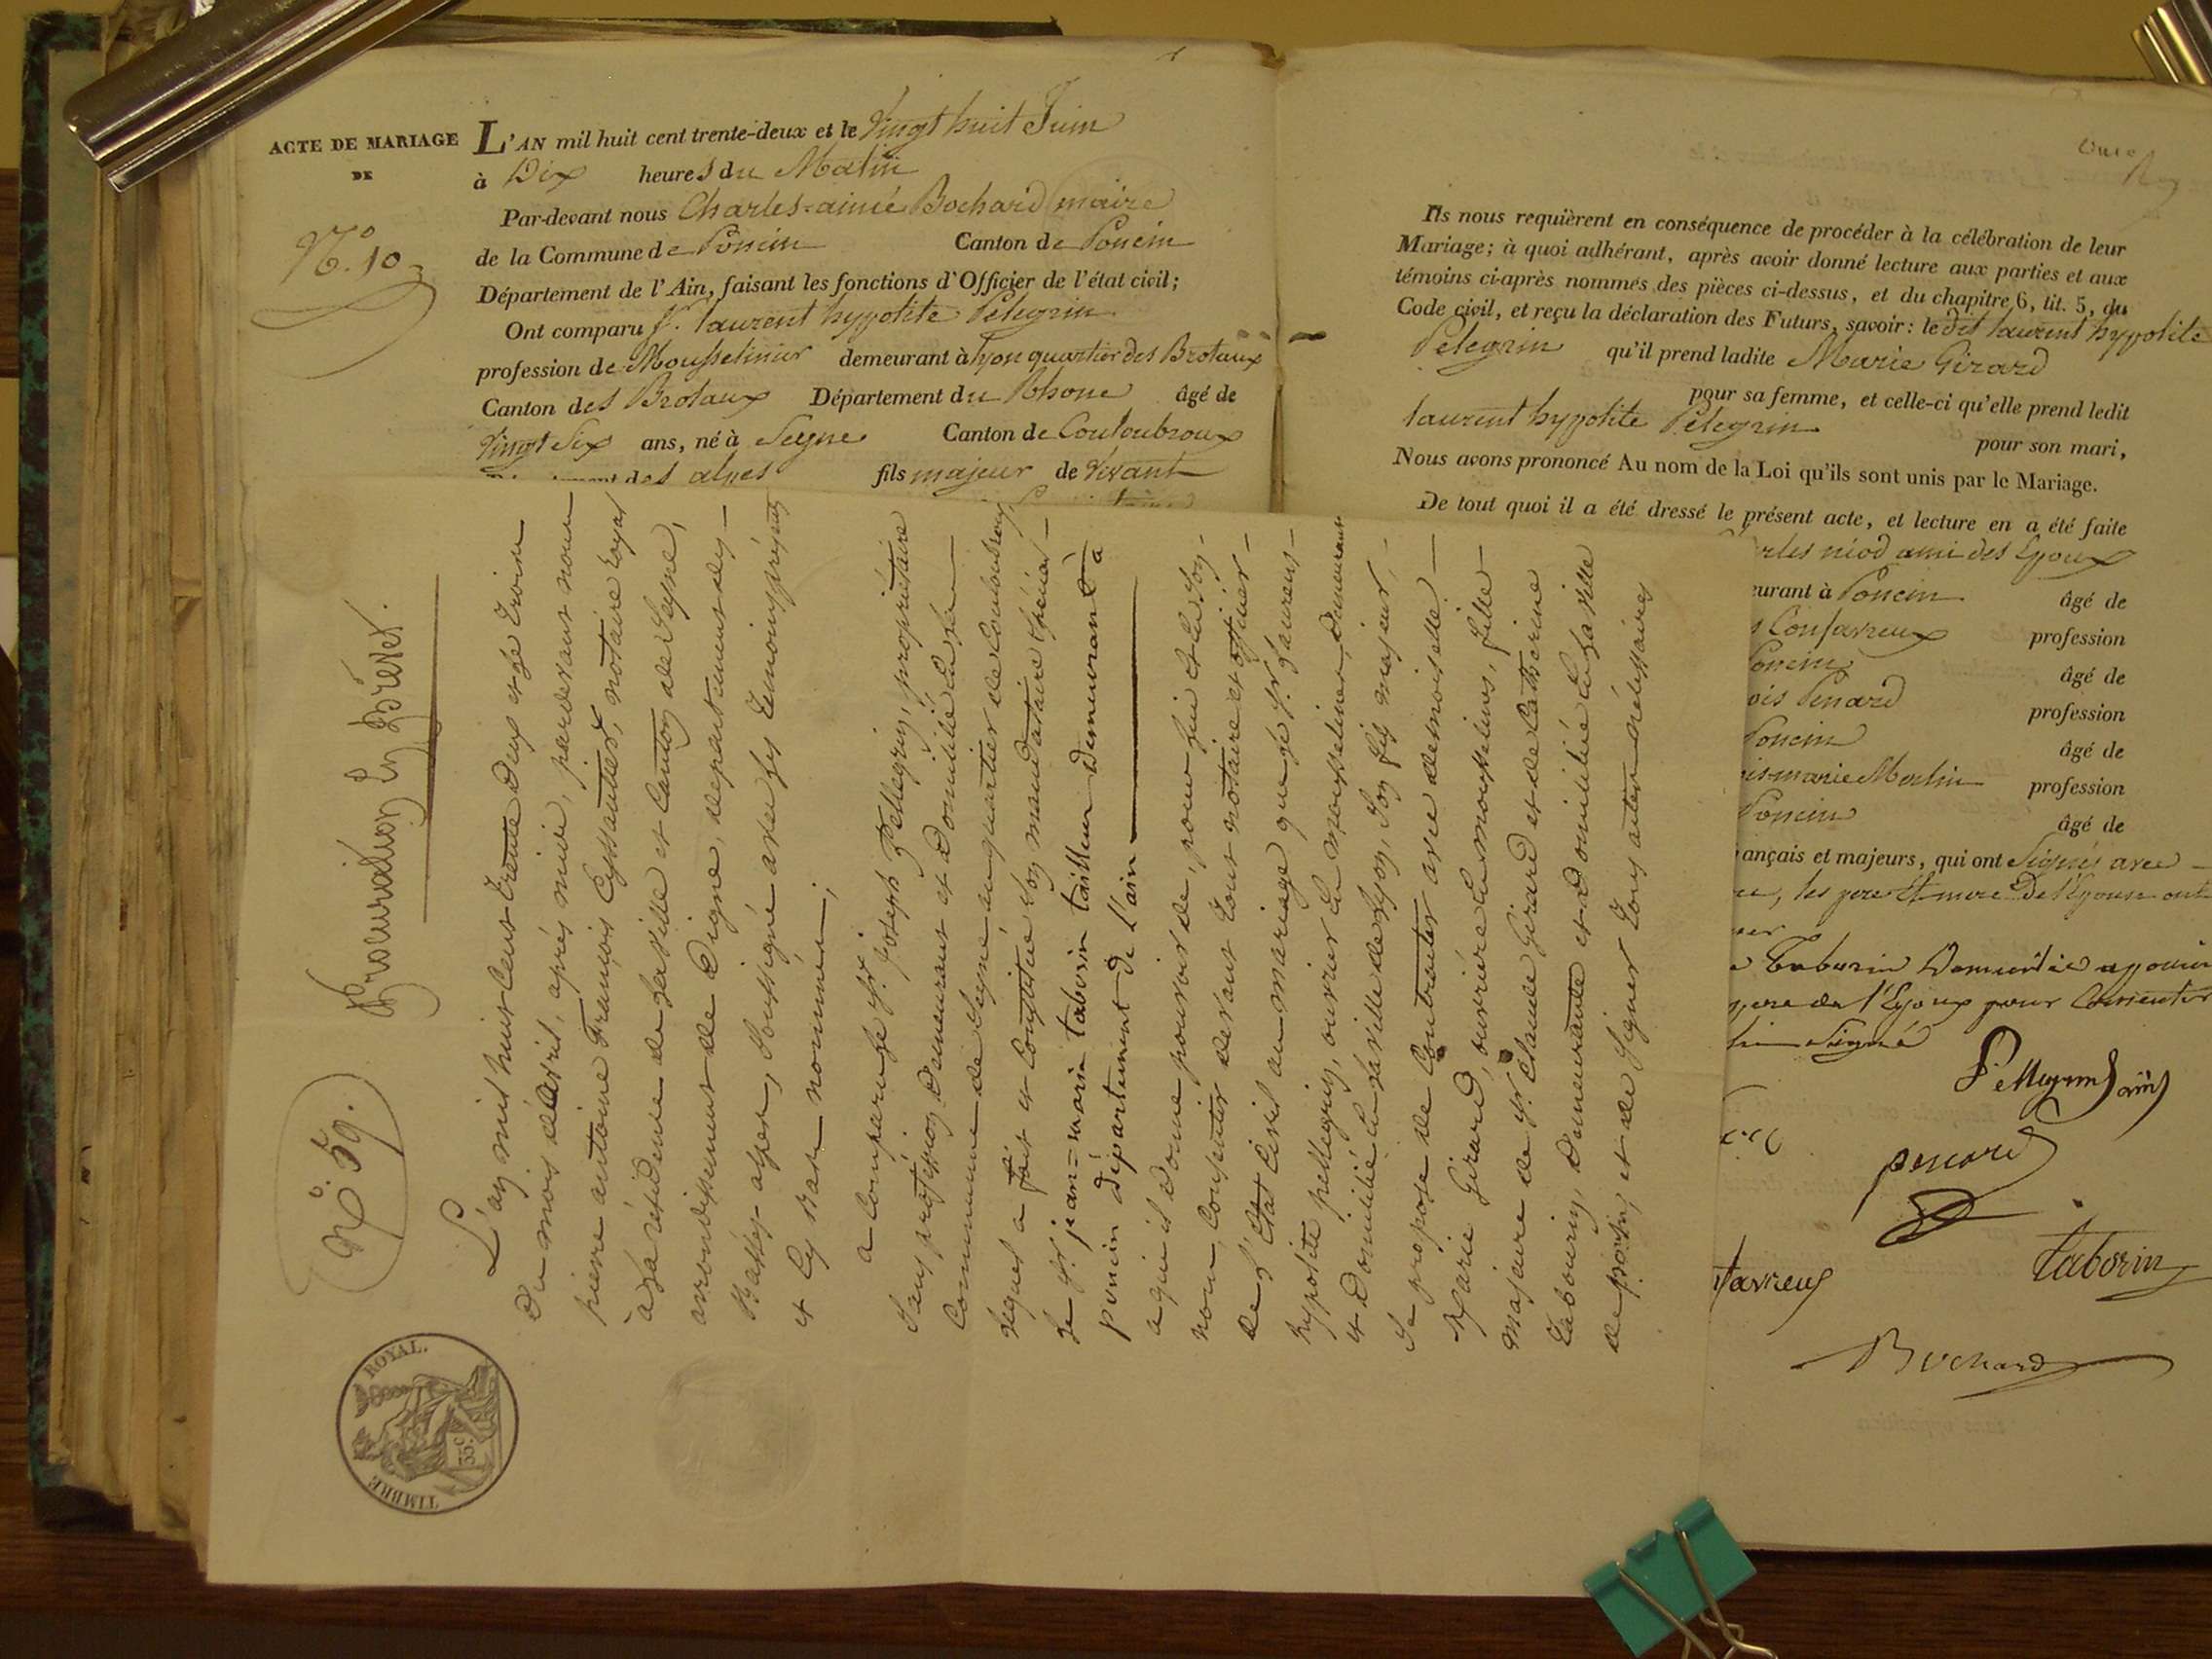 ACTE DE MARIAGE
DE
N.o 10
L'AN mil huit cent trente-deux et le Vingt huit Juin
à Dix heures du Matin
Par-devant nous Charles-aimé Bochard maire
de la Commune de Poncin Canton de Poncin
Département de l'Ain, faisant les fonctions d'Officier de l'état civil;
Ont comparu S.r laurent hyppolite Pelegrin
profession de Mousselinier demeurant à Lyon quartier des Brotaux
Canton des Brotaux Département du Rhone âgé de
Vingt Six ans, né à Seyne Canton de Couloubroux
des alpes fils majeur de Vivant
N.o 59.
Procuration En Brevet.
L'an mil huit Cent trente Deux et le troisieme
Du mois d'avril, après midi, pardevant nous
pierre antoine François Eyssautier, notaire royal
à la résidence de la ville et Canton de Seyne,
arrondissement de Digne, département des
Basses-alpes, soussigné avec les témoins présents
et Ey bas nommés;
a Comparu le S.r Joseph Pellegrin, propriétaire
Sans profession Demeurant et Domicilié
Commune de Seyne au quartier de Couloubroux,
léquel a fait et Constitué Son mandataire Spécial
le S.r jean=marie taborin tailleur Demeurant à
poncin département de l'ain
a qui il Donne pouvoir de, pour lui et en Son
nom, Consentir devant tout notaire et officier
de l'État Civil au mariage que le S.r Laurent
hyppolite pellegrin, ouvrier en mousseline, Demeurant
et Domicilié en la ville de Lyon, Son fils majeur,
Se propose de Contracter avec demoiselle
Marie Girard, ouvrière en mousselines, fille
majeure de S.r Claude Girard et de Catherine
Tabourin, Demeurante et Domiciliée en la ville
de poncin, et de Signer tous actes nécéssaires
Ils nous requièrent en conséquence de procéder à la célébration de leur
Mariage; à quoi adhérant, après avoir donné lecture aux parties et aux
témoins ci-après nommés des pièces ci-dessus, et du chapitre 6, tit. 5, du
Code civil, et reçu la déclaration des Futurs, savoir: le dit laurent hyppolite
Pelegrin qu'il prend ladite Marie Girard
pour sa femme, et celle-ci qu'elle prend ledit
laurent hyppolite Pelegrin pour son mari,
Nous avons prononcé Au nom de la Loi qu'ils sont unis par le Mariage.
De tout quoi il a été dressé le présent acte, et lecture en a été faite
rles niod ami des Epoux
urant à Poncin âgé de
profession
oncin âgé de
ois Penard profession
Poncin âgé de
is-marie Merlin profession
Poncin âgé de
ançais et majeurs, qui ont Signés avec
les pere et mere De l'Epouse ont
Taburin Domicilié a poncin
pere de l'Epoux pour Consentir
Signé
Pellegrin
penard
taborin
tavreux
Bochard
TIMBRE ROYAL.
35.c